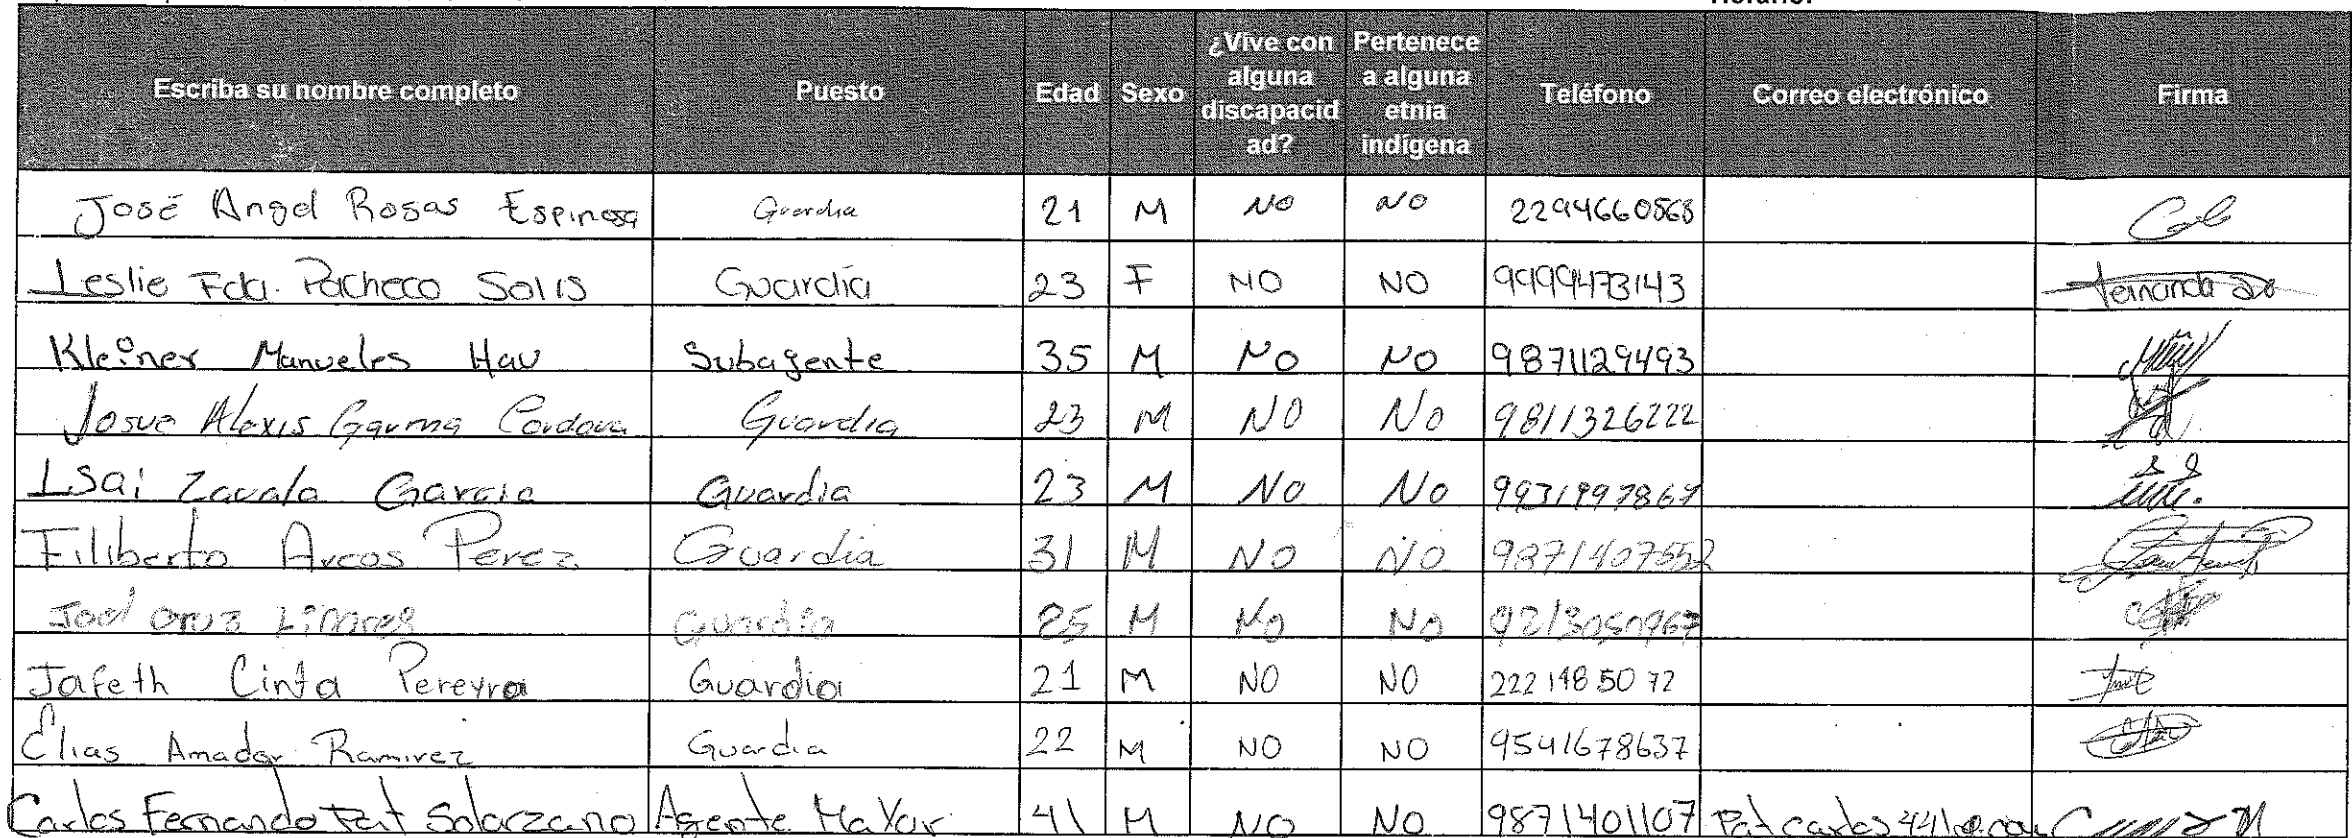 Escriba su nombre completo Puesto Edad Sexo ¿Vive con alguna discapacid ad? Pertenece a alguna etnia indígena Teléfono Correo electrónico Firma
José Angel Rosas Espinosa Guardia 21 M NO NO 2294660568
Leslie Fda. Pacheco Solis Guardia 23 F NO NO 9999473143
Kleiner Manueles Hau Subagente 35 M NO NO 9871129493
Josue Alexis Garma Cordova Guardia 23 M NO No 9811326222
Isai Zavala Garcia Guardia 23 M No No
Filiberto Arcos Perez Guardia 31 M NO NO 9871407552
Joel cruz Linares Guardia 25 M No No
Jafeth Cinta Pereyra Guardia 21 M NO NO 222 148 50 72
Elias Amador Ramirez Guardia 22 M NO NO 9541678637
Carlos Fernando Pat Solorzano Agente Mayor 41 M NO NO 9871401107